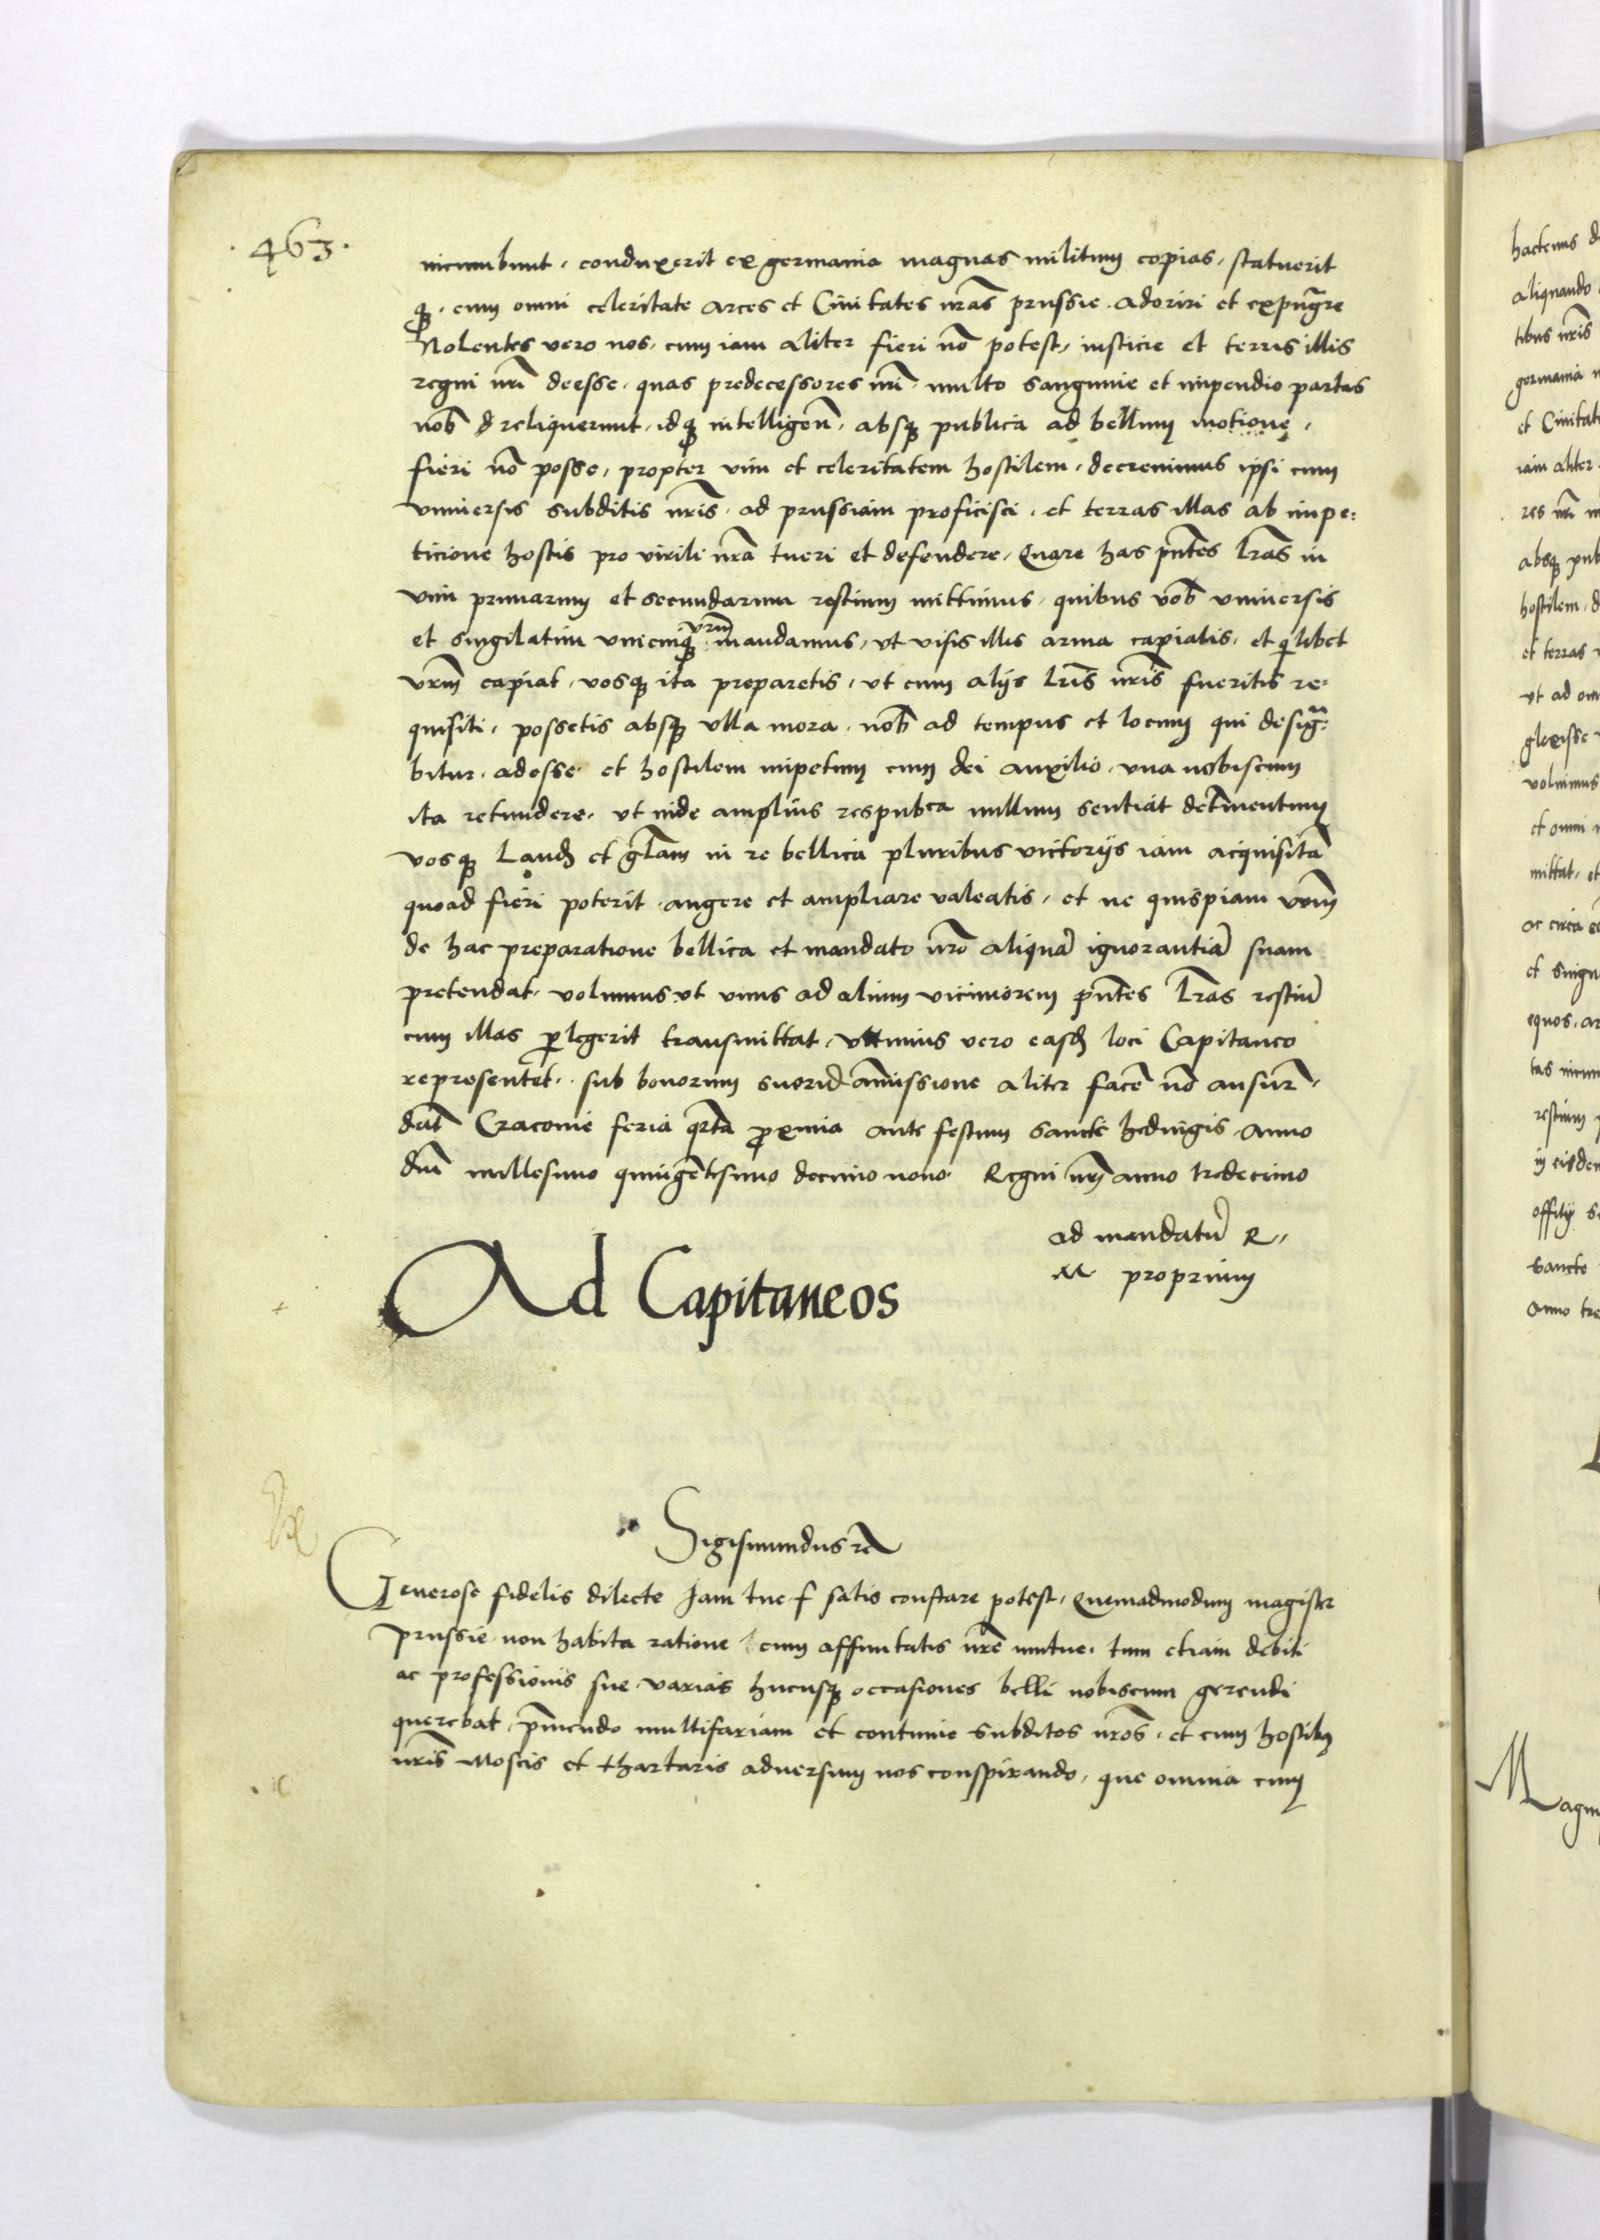 .463.
incumbunt, conduxerit ex germania magnas militum copias, statuerit
q̃, cum omni celeritate arces et Civitates nr̃as prussie adoriri et expug̃re
Nolentes vero nos, cum iam aliter fieri nõ potest, iusticie et terris illis
regni nr̃i deesse, quas predecessores nr̃i multo sanguine et impendio partas
nob̃ reliquerunt, idq̃ intelligeñ, absq̃ publica ad bellum motione,
fieri nõ posse, propter vim et celeritatem hostilem, decrevimus ipsi cum
universis subditis nr̃is ad prussiam proficisci, et terras illas ab impe:
ticione hostis pro virili nr̃a tueri et defendere, Quare has pñtes Lr̃as in
vim primarum et secundarum restium mittimus, quibus vob̃ universis
et singilatim unicuiq̃ vr̃m mandamus, ut visis illis arma capiatis, et q̃libet
vr̃m capiat, vosq̃ ita preparetis, ut cum alijs lr̃is nr̃is fueritis re:
quisiti, possetis absq̃ ulla mora, nob̃ ad tempus et locum qui desig̃:
bitur, adesse et hostilem impetum cum dei auxilio, una nobiscum
ita retundere, ut inde amplius respub̃ca nullum sentiat det̃mentum
vosq̃ Laud̃ et gl̃am in re bellica pluribus victorijs iam acquisitã
quoad fieri poterit, augere et ampliare valeatis, et ne quispiam vr̃m
de hac preparatione bellica et mandato nr̃o aliquã ignorantiã suam
pretendat, volumus ut unus ad alium viciniorem pñtes Lr̃as restiũ
cum illas p̃legerit transmittat, ultimus vero easd̃ loci Capitaneo
representet, sub bonorum suorũ amissione aliter facẽ nõ ansur̃,
dat̃ Cracovie feria qr̃ta p̃xima ante festum sancte hedvigis Anno
dñi millesimo quingẽtesimo decimo nono Regni nr̃i anno tredecimo
ad mandatũ R
M proprium
Ad Capitaneos
Sigismundus rẽ
Generose fidelis dilecte Jam tue f satis constare potest, Quemadmodum magister
prussie, non habita ratione cum affinitatis nr̃e mutue, tum etiam debiti
ac professionis sue, varias hucusq̃ occasiones belli nobiscum gerendi
querebat, p̃mendo multifariam et continue subditos nr̃os, et cum hostibꝰ
nr̃is Moscis et thartaris adversum nos conspirando, que omnia cum